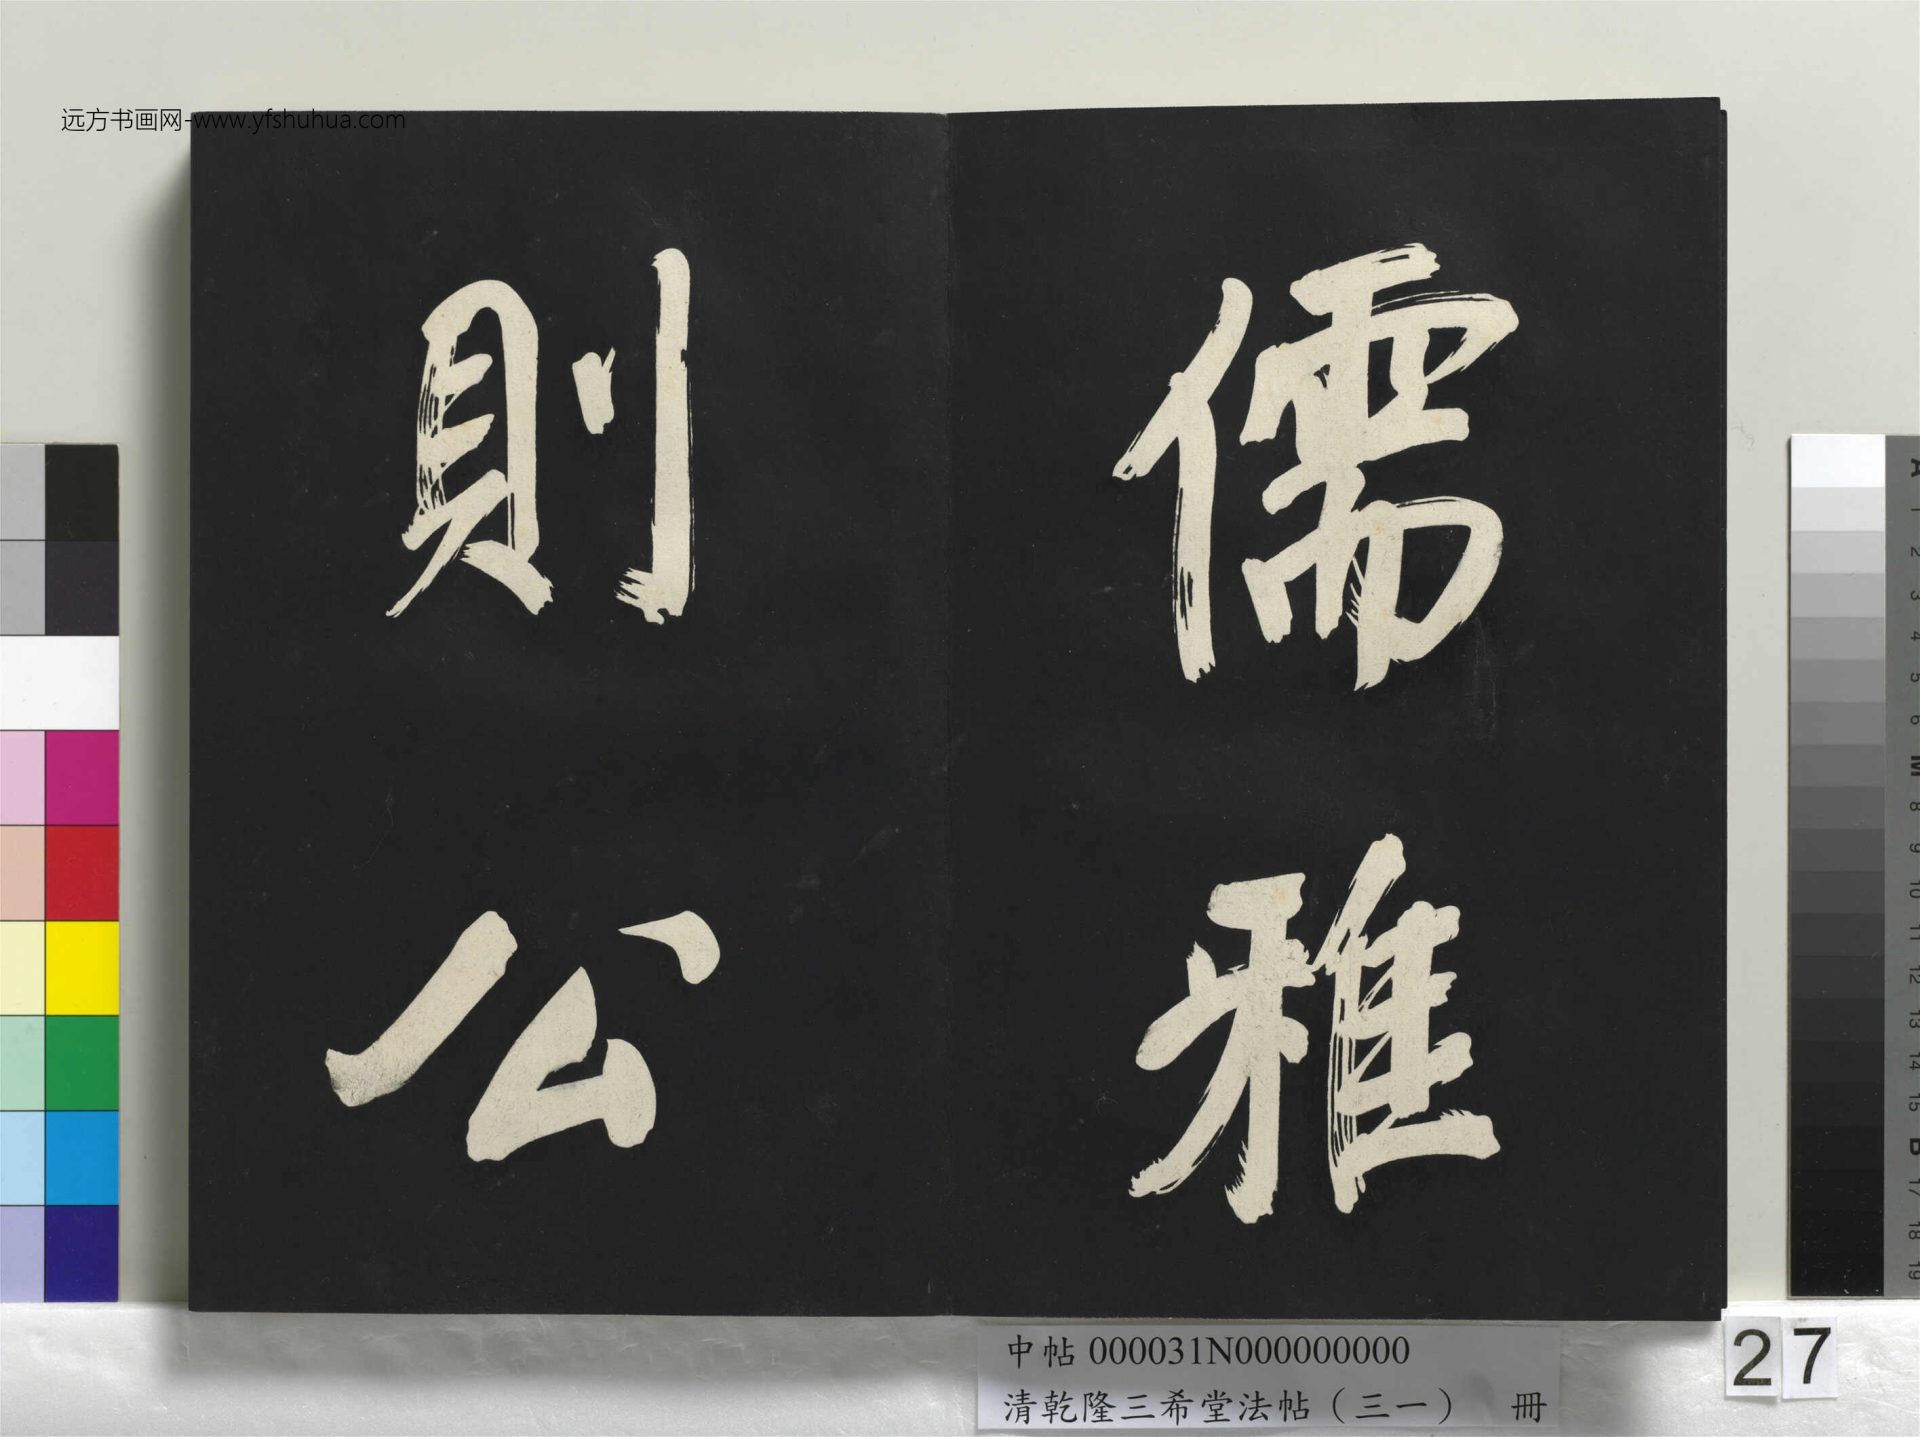 远方书画网-www.yfshuhua.com
儒雅
則公
中帖 000031N000000000
清乾隆三希堂法帖（三一） 冊
27
A 1 2 3 4 5 6 M 8 9 10 11 12 13 14 15 B 17 18 19